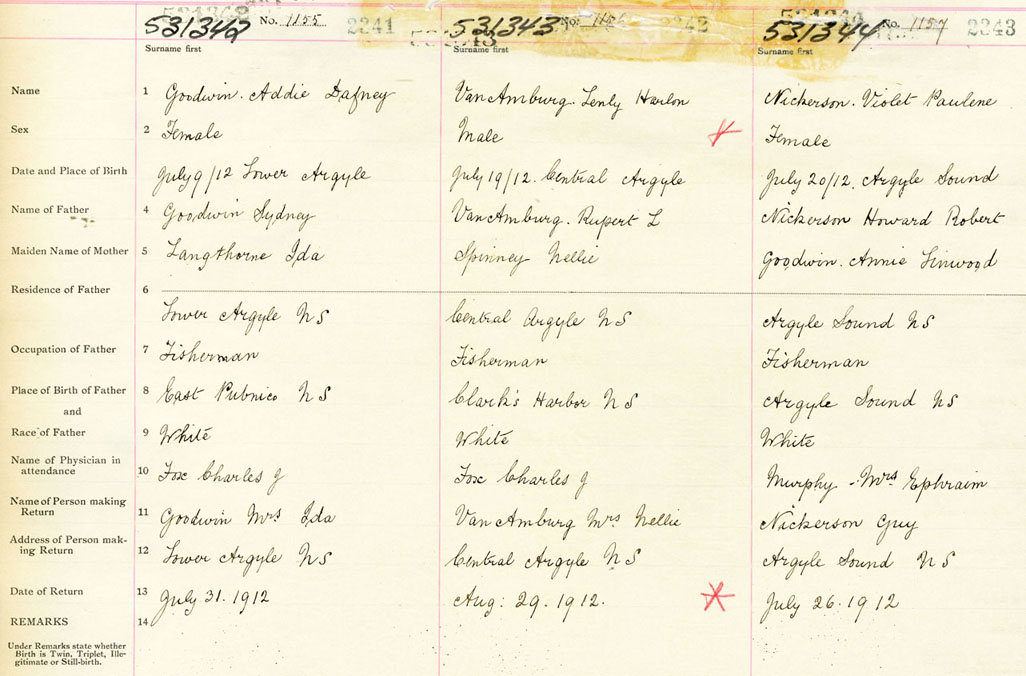 531342 No. 1155 2341 531343 No. 1156 531344 No. 1157 2343
Surname first Surname first Surname first
Name 1 Goodwin. Addie Dafney VanAmburg. Lenly Harlon Nickerson. Violet Paulene
Sex 2 Female Male Female
Date and Place of Birth July 9/12 Lower Argyle July 19/12. Central Argyle July 20/12. Argyle Sound
Name of Father 4 Goodwin Sydney VanAmburg. Rupert L Nickerson Howard Robert
Maiden Name of Mother 5 Langthorne Ida Spinney Nellie Goodwin. Annie Linwood
Residence of Father 6
Lower Argyle NS Central Argyle NS Argyle Sound NS
Occupation of Father 7 Fisherman Fisherman Fisherman
Place of Birth of Father 8 East Pubnico NS Clark's Harbor NS Argyle Sound NS
and
Race of Father 9 White White White
Name of Physician in
attendance 10 Fox Charles J Fox Charles J Murphy - Mrs Ephraim
Name of Person making
Return 11 Goodwin Mrs Ida VanAmburg Mrs Nellie Nickerson Guy
Address of Person mak-
ing Return 12 Lower Argyle NS Central Argyle NS Argyle Sound NS
Date of Return 13 July 31. 1912 Aug: 29. 1912. July 26. 1912
REMARKS 14
Under Remarks state whether
Birth is Twin, Triplet, Ille-
gitimate or Still-birth.